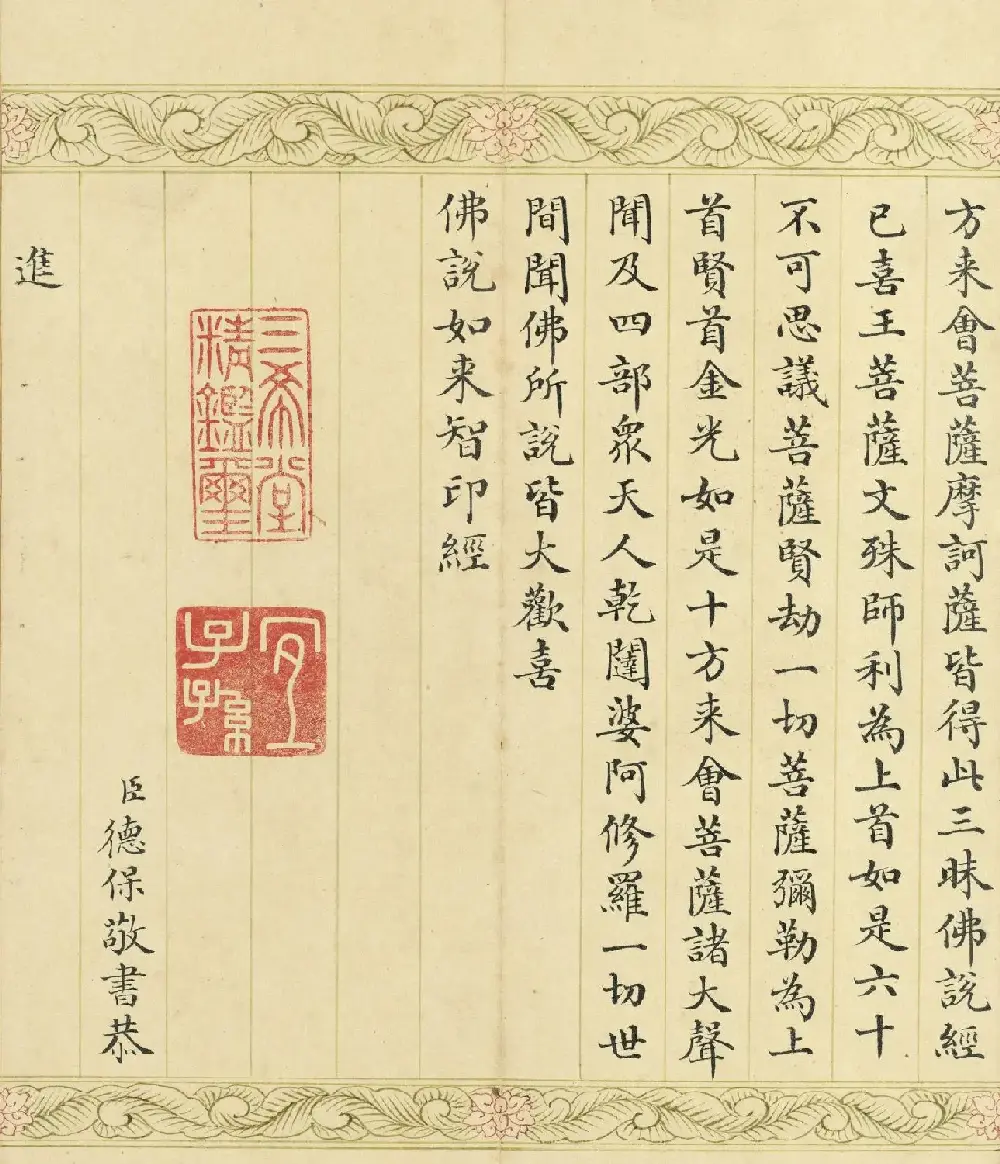 方来會菩薩摩訶薩皆得此三昧佛說經
已喜王菩薩文殊師利為上首如是六十
不可思議菩薩賢劫一切菩薩彌勒為上
首賢首金光如是十方来會菩薩諸大聲
聞及四部衆天人乾闥婆阿修羅一切世
間聞佛所說皆大歡喜
佛說如来智印經
三希堂
精鑑璽
宜
子孫
臣德保敬書恭
進